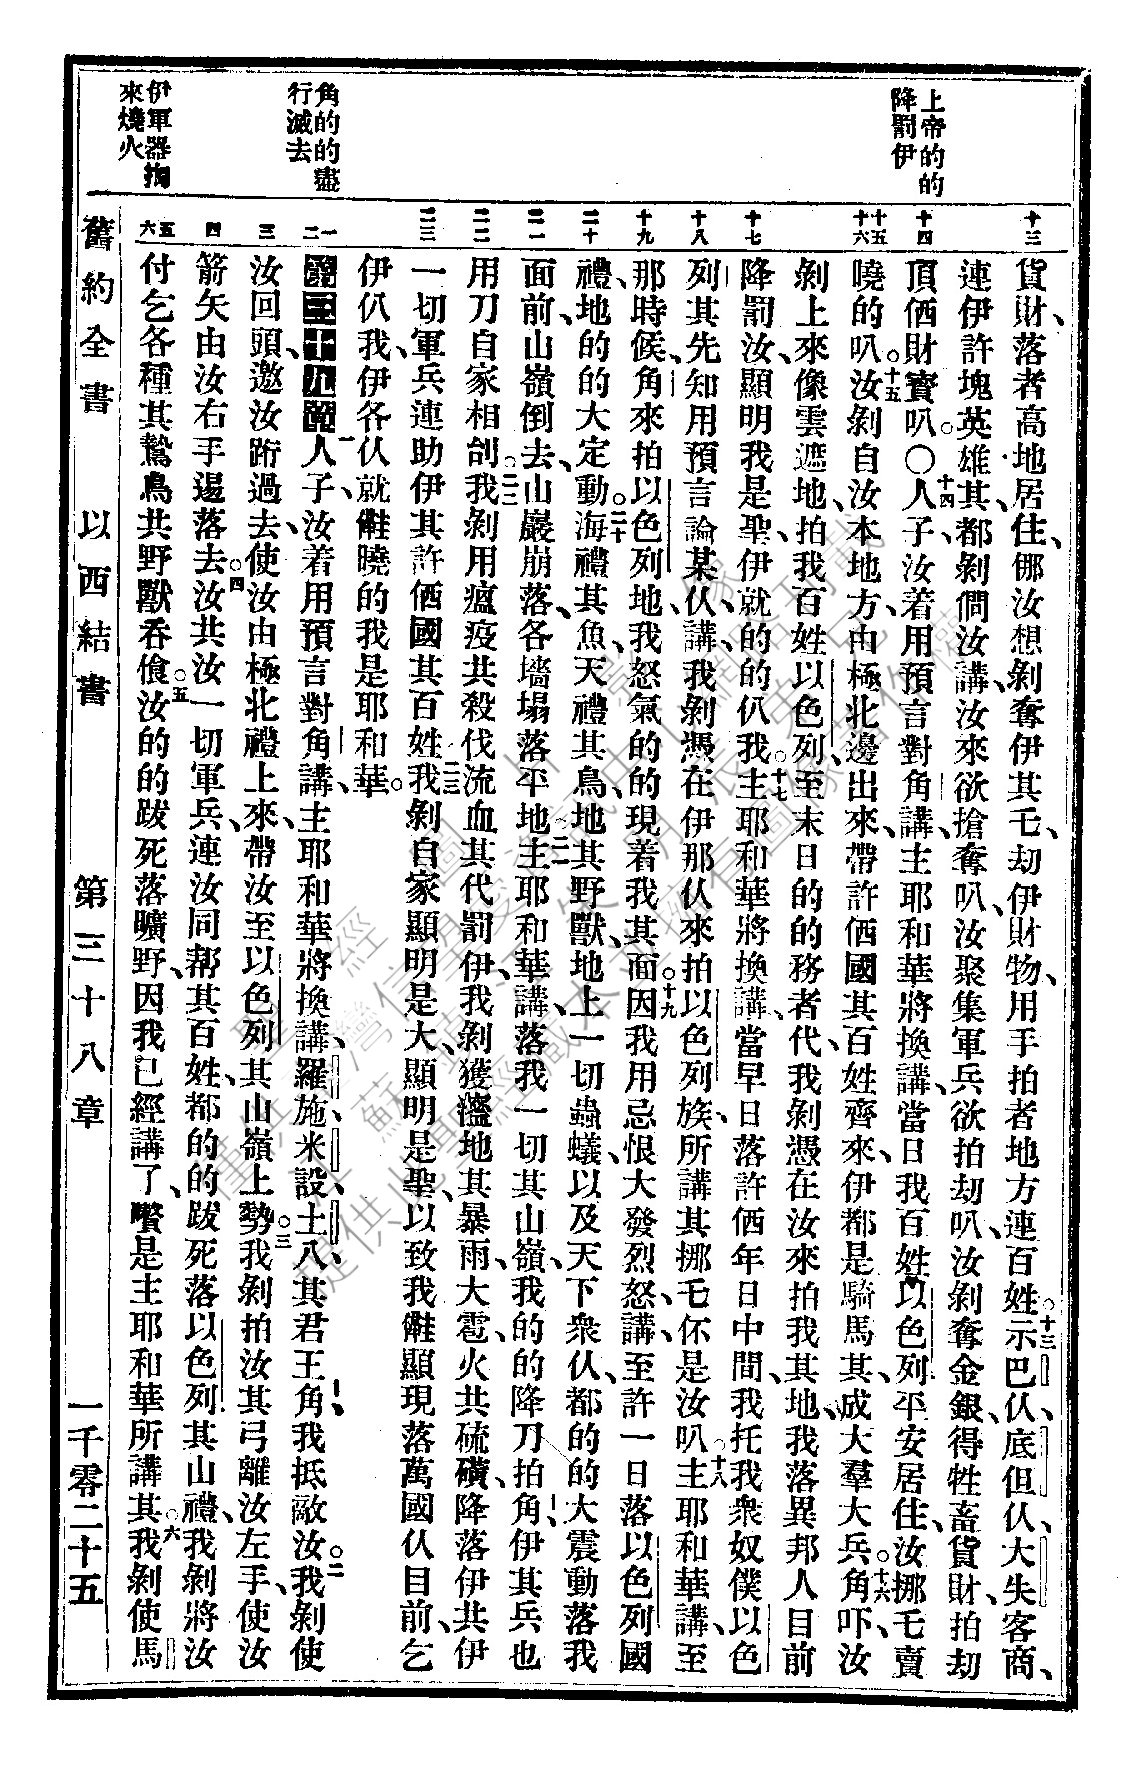 上帝的的
降罰伊
角的的盡
行滅去
伊軍器掏
來燒火
十三
十四
十五
十六
十七
十八
十九
二十
二一
二二
二三
一
二
三
四
五
六
貨財、落者高地居住、倻汝想剝奪伊其乇、劫伊財物、用手拍者地方連百姓。十三示巴仈、底但仈、大失客商、
連伊許塊英雄、其都剝倜汝講、汝來欲搶奪叭、汝聚集軍兵欲拍劫叭、汝剝奪金銀、得牲畜貨財、拍劫
頂価財寶叭。〇十四人子、汝着用預言對角講、主耶和華將換講、當日我百姓以色列平安居住、汝挪乇賣
曉的叭。十五汝剝自汝本地方由極北邊出來、帶許価國其百姓齊來、伊都是騎馬其、成大羣大兵。十六角吓、汝
剝上來、像雲遮地、拍我百姓以色列、至末日的的務者代、我剝憑在汝來拍我其地、我落異邦人目前
降罰汝、顯明我是聖、伊就的的仈我。十七主耶和華將換講、當早日落許価年日中間、我托我衆奴僕以色
列其先知用預言論某仈講、我剝憑在伊那仈來拍以色列族、所講其挪乇伓是汝叭。十八主耶和華講、至
那時候、角來拍以色列地、我怒氣的的現着我其面。十九因我用忌恨大發烈怒、講、至許一日落以色列國
禮、地的的大定動。二十海禮其魚、天禮其鳥、地其野獸、地上一切蟲蟻、以及天下衆仈、都的的大震動落我
面前、山嶺倒去、山巖崩落、各墻塌落平地。二一主耶和華講、落我一切其山嶺、我的的降刀拍角、伊其兵也
用刀自家相刣。二二我剝用瘟疫共殺伐流血其代罰伊、我剝獲𣿅地其暴雨、大雹、火共硫磺、降落伊共伊
一切軍兵、連助伊其許価國其百姓。二三我剝自家顯明是大、顯明是聖、以致我雔顯現落萬國仈目前、乞
伊仈我、伊各仈就雔曉的我是耶和華。
第三十九章一人子、汝着用預言對角講、主耶和華將換講、羅施、米設、土八其君王角、我抵敵汝。二我剝使
汝回頭、邀汝跡過去、使汝由極北禮上來、帶汝至以色列其山嶺上勢。三我剝拍汝其弓離汝左手、使汝
箭矢由汝右手邊落去。四汝共汝一切軍兵、連汝同幫其百姓、都的的跋死落以色列其山禮、我剝將汝
付乞各種其鷙鳥共野獸吞飡。五汝的的跋死落曠野、因我已經講了、囋是主耶和華所講其。六我剝使馬
舊約全書 以西結書 第三十八章 一千零二十五